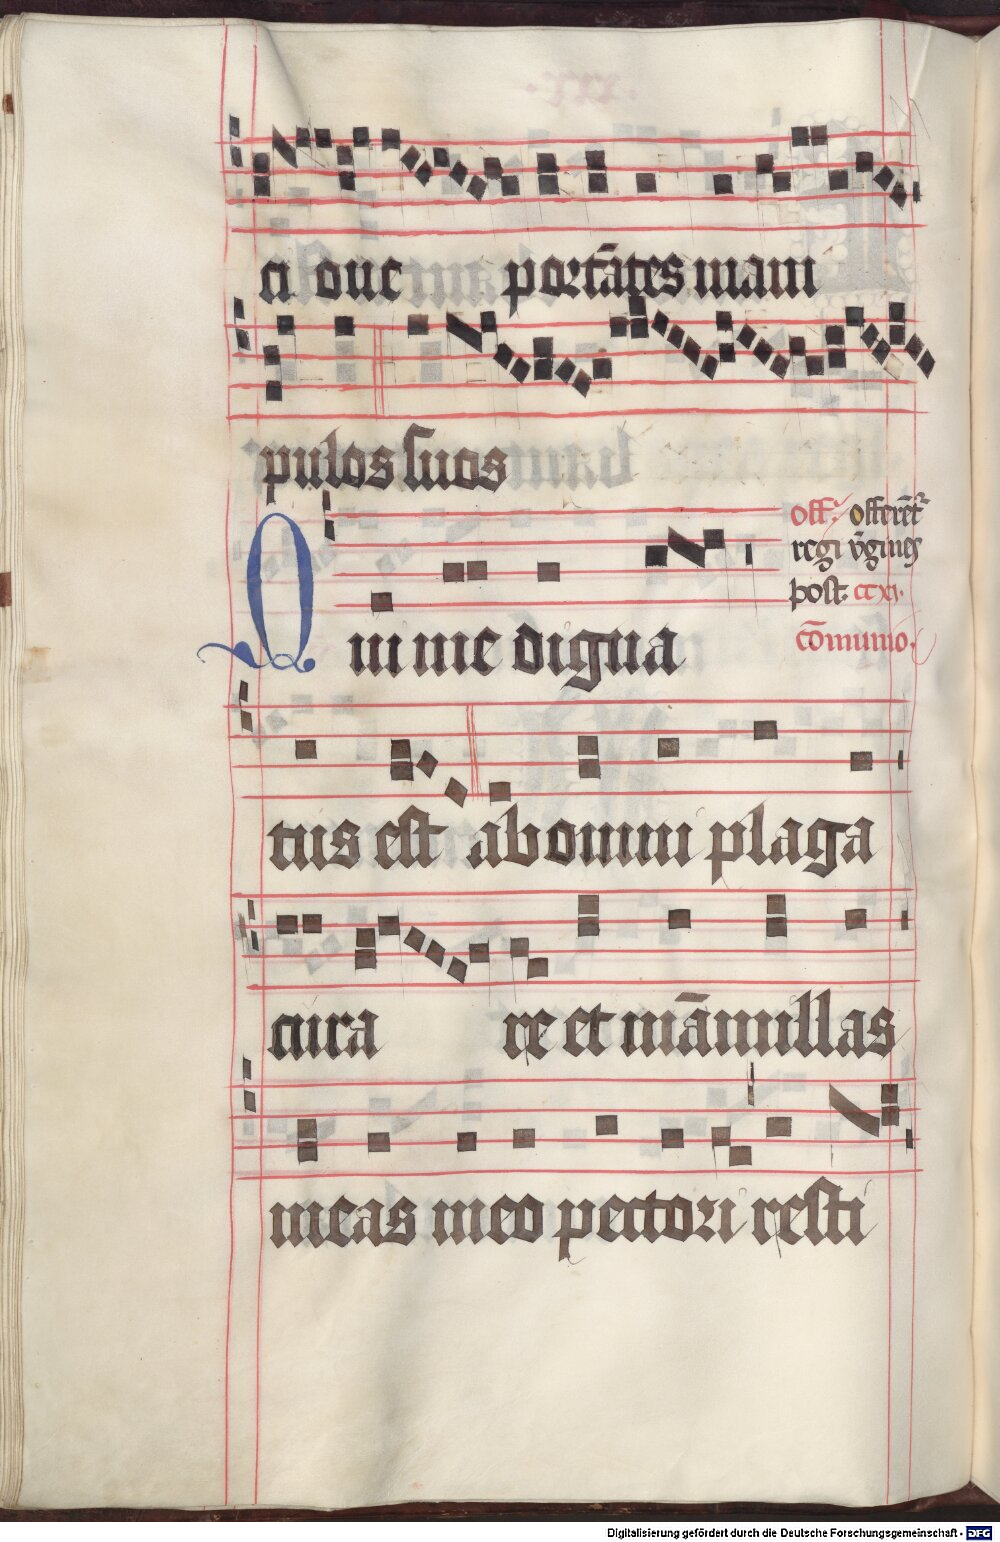 ci one portātes mani
pulos suos
off. offerēt᷑
regi v̄gines
post. ccxi.
cōmunio.
Qui me digna
tus est ab omni plaga
cura re et māmillas
meas meo pectori resti
Digitalisierung gefördert durch die Deutsche Forschungsgemeinschaft - DFG